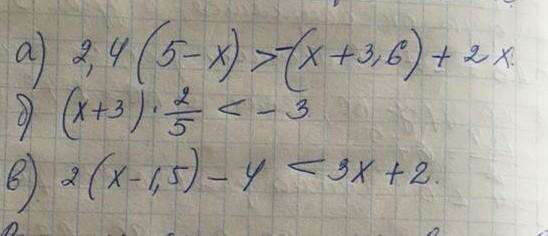 а) 2,4(5-x) > -(x+3,6)+2x.
б) (x+3)·2/5 < -3
в) 2(x-1,5)-4 < 3x+2.